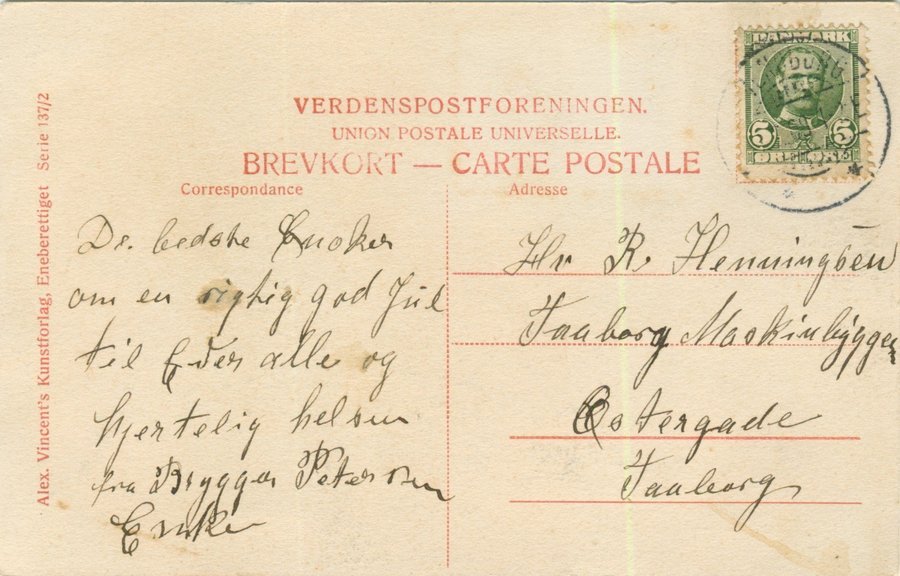 VERDENSPOSTFORENINGEN.
UNION POSTALE UNIVERSELLE.
BREVKORT — CARTE POSTALE
Correspondance
Adresse
De bedste Ønsker
om en rigtig god Jul
til Eder alle og
hjertelig helsen
fra Brygger Petersen
Enke
Hr R. Henningsen
Faaborg Maskinbyggeri
Østergade
Faaborg
DANMARK
5 5
Alex. Vincent's Kunstforlag, Eneberettiget Serie 137/2